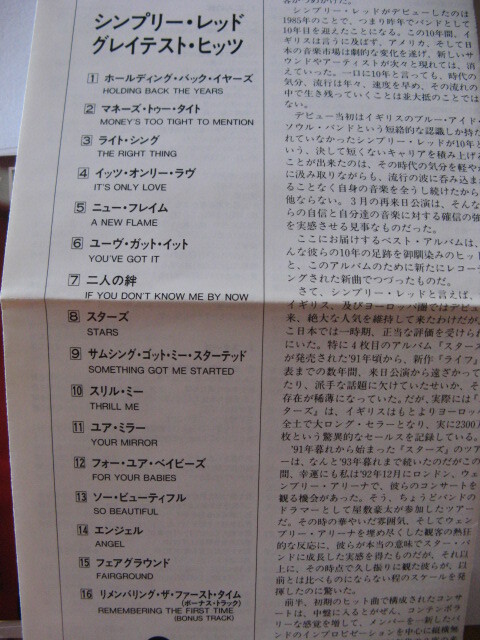 シンプリー・レッド
グレイテスト・ヒッツ
1 ホールディング・バック・イヤーズ
HOLDING BACK THE YEARS
2 マネーズ・トゥー・タイト
MONEY'S TOO TIGHT TO MENTION
3 ライト・シング
THE RIGHT THING
4 イッツ・オンリー・ラヴ
IT'S ONLY LOVE
5 ニュー・フレイム
A NEW FLAME
6 ユーヴ・ガット・イット
YOU'VE GOT IT
7 二人の絆
IF YOU DON'T KNOW ME BY NOW
8 スターズ
STARS
9 サムシング・ゴット・ミー・スターテッド
SOMETHING GOT ME STARTED
10 スリル・ミー
THRILL ME
11 ユア・ミラー
YOUR MIRROR
12 フォー・ユア・ベイビーズ
FOR YOUR BABIES
13 ソー・ビューティフル
SO BEAUTIFUL
14 エンジェル
ANGEL
15 フェアグラウンド
FAIRGROUND
16 リメンバリング・ザ・ファースト・タイム
(ボーナス・トラック)
REMEMBERING THE FIRST TIME
(BONUS TRACK)
シンプリー・レッドがデビューしたのは
1985年のことで、つまり昨年でバンドとして
10年目を迎えたことになる。この10年間、イ
ギリスは言うに及ばず、アメリカ、そして日
本の音楽市場は劇的な変化を遂げ、新しいサ
ウンドやアーティストが次々と現れては、消
えていった。一口に10年と言っても、時代の
気分、流行は年々、速度を早め、その流れの
中で生き残っていくことは並大抵のことでは
ない。
デビュー当初はイギリスのブルー・アイド・
ソウル・バンドという短絡的な認識しか持た
れていなかったシンプリー・レッドが10年と
いう、決して短くないキャリアを積み上げる
ことが出来たのは、その時代の気分を軽やか
に汲み取りながらも、流行の波に呑み込まれ
ることなく自身の音楽を全うし続けたから
他ならない。3月の再来日公演は、そんな
らの自信と自分達の音楽に対する確信の強
を実感させる見事なものだった。
ここにお届けするベスト・アルバムは、
んな彼らの10年の足跡を御馴染みのヒット
と、このアルバムのために新たにレコー
ングされた新曲でつづったものだ。
さて、シンプリー・レッドと言えば、
イギリス、及びヨーロッパ圏ではデビュー
来、絶大な人気を維持して来たわけだが、
こ日本では一時期、正当な評価を受けられ
にいた。特に4枚目のアルバム『スターズ
が発売された'91年頃から、新作『ライフ』
表までの数年間、来日公演から遠ざかって
たり、派手な話題に欠けていたせいか、そ
存在が稀薄になっていた。だが、実際には『
ターズ』は、イギリスはもとよりヨーロッ
全土で大ロング・セラーとなり、実に2300万
枚という驚異的なセールスを記録している。
'91年暮れから始まった『スターズ』のツア
ーは、なんと'93年暮れまで続いたのだがこの
間、幸運にも私は'92年12月にロンドン、ウェ
ンブリー・アリーナで、彼らのコンサートを
観る機会があった。そう、ちょうどバンドの
ドラマーとして屋敷豪太が参加したツアー
だ。その時の華やいだ雰囲気、そしてウェン
ブリー・アリーナを埋め尽くした観客の熱狂
的な反応に、彼らが本当の意味でスター・バ
ンドに成長した実感を得たものだが、それ以
上に、その時点で久し振りに観た彼らが、以
前とは比べものにならない程のスケールを発
揮したのに驚いた。
前半、初期のヒット曲で構成されたコンサ
ートは、中盤に入るとがぜん、コンテンポラ
リーな感覚を増して、メンバーを一新したバ
ンドのインプロビゼーション中心に縦横無